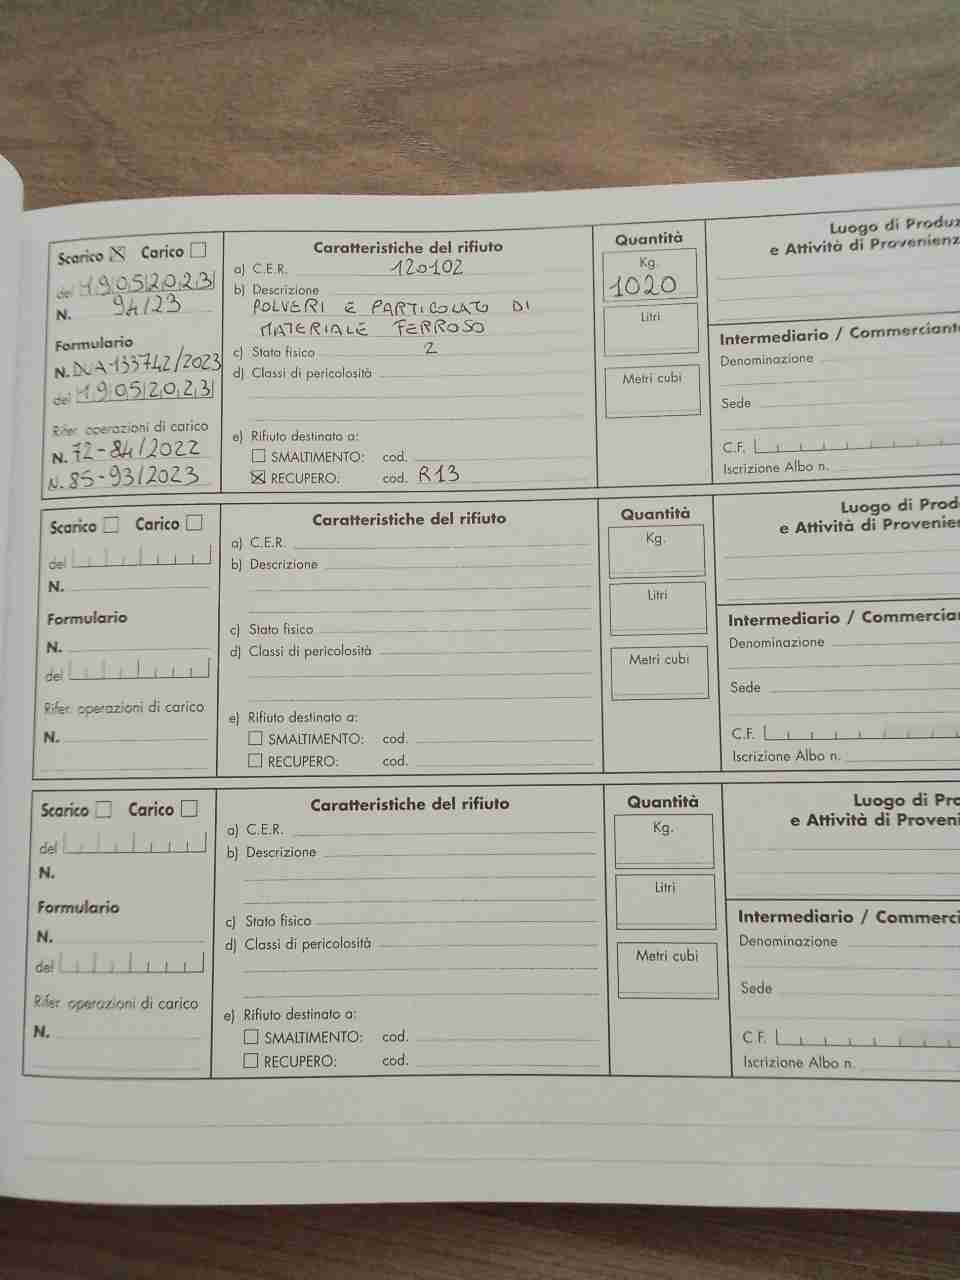 Scarico Carico
del 19052023
N. 94/23
Formulario
N. DUA-133742/2023
del 19052023
Rifer. operazioni di carico
N. 72-84/2022
N. 85-93/2023
Caratteristiche del rifiuto
a) C.E.R. 120102
b) Descrizione
POLVERI E PARTICOLATO DI
MATERIALE FERROSO
c) Stato fisico 2
d) Classi di pericolosità
e) Rifiuto destinato a:
SMALTIMENTO: cod.
RECUPERO: cod. R13
Quantità
Kg.
1020
Litri
Metri cubi
Luogo di Produz
e Attività di Provenienz
Intermediario / Commerciant
Denominazione
Sede
C.F.
Iscrizione Albo n.
Scarico Carico
del
N.
Formulario
N.
del
Rifer. operazioni di carico
N.
Caratteristiche del rifiuto
a) C.E.R.
b) Descrizione
c) Stato fisico
d) Classi di pericolosità
e) Rifiuto destinato a:
SMALTIMENTO: cod.
RECUPERO: cod.
Quantità
Kg.
Litri
Metri cubi
Luogo di Prod
e Attività di Provenie
Intermediario / Commercian
Denominazione
Sede
C.F.
Iscrizione Albo n.
Scarico Carico
del
N.
Formulario
N.
del
Rifer. operazioni di carico
N.
Caratteristiche del rifiuto
a) C.E.R.
b) Descrizione
c) Stato fisico
d) Classi di pericolosità
e) Rifiuto destinato a:
SMALTIMENTO: cod.
RECUPERO: cod.
Quantità
Kg.
Litri
Metri cubi
Luogo di Pro
e Attività di Proveni
Intermediario / Commerci
Denominazione
Sede
C.F.
Iscrizione Albo n.